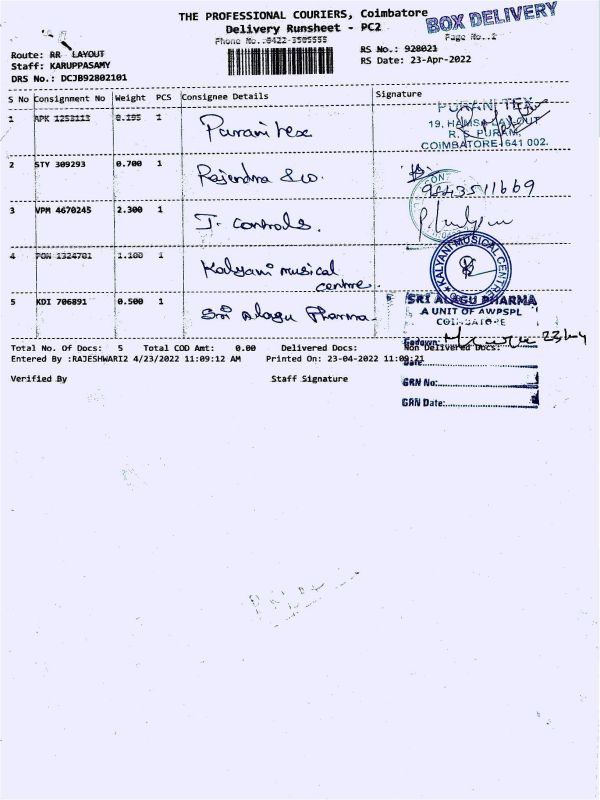 THE PROFESSIONAL COURIERS, Coimbatore
BOX DELIVERY
Delivery Runsheet - PC2
Phone No.:0422-3505555
Page No.:2
Route: RR LAYOUT
RS No.: 928021
Staff: KARUPPASAMY
RS Date: 23-Apr-2022
DRS No.: DCJB92802101
S No Consignment No Weight PCS Consignee Details Signature
1 APK 1253113 0.195 1 Purani tex
PURANI TEX
19, HAMSA LAYOUT
R. S. PURAM,
COIMBATORE-641 002.
2 STY 309293 0.700 1 Rajendra & co.
9843511669
3 VPM 4670245 2.300 1 J. controls.
4 PON 1324701 1.100 1 Kalyani musical centre.
KALYANI MUSICAL CENTRE
5 KDI 706891 0.500 1 Sri Alagu Pharma
SRI ALAGU PHARMA
A UNIT OF AWPSPL
COIMBATORE
Total No. Of Docs: 5 Total COD Amt: 0.00 Delivered Docs: Non Delivered Docs:
Godown:
Entered By :RAJESHWARI2 4/23/2022 11:09:12 AM Printed On: 23-04-2022 11:09:21
Date:
Verified By Staff Signature
GRN No:
GRN Date: